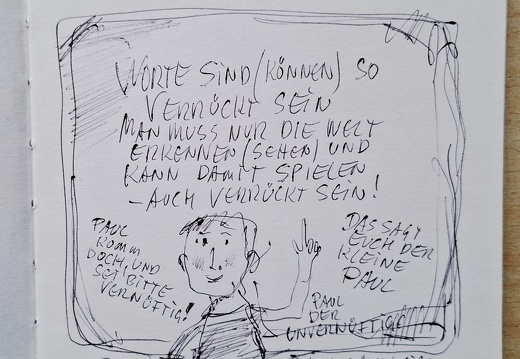 WORTE SIND (KÖNNEN) SO
VERRÜCKT SEIN
MAN MUSS NUR DIE WELT
ERKENNEN (SEHEN) UND
KANN DAMIT SPIELEN
– AUCH VERRÜCKT SEIN!
PAUL
KOMM
DOCH, UND
SEI BITTE
VERNÜFTIG!
DAS SAGT
EUCH DER
KLEINE
PAUL
PAUL
DER
UNVERNÜFTIGE